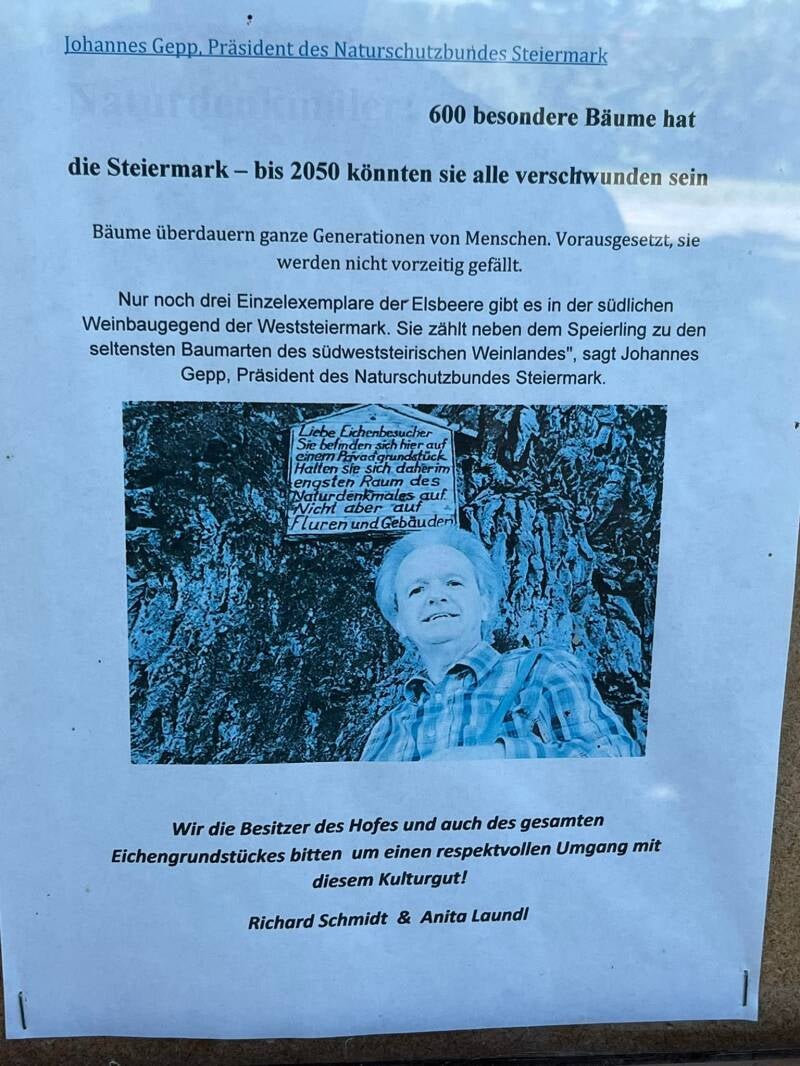 Johannes Gepp, Präsident des Naturschutzbundes Steiermark
Naturdenkmäler:
600 besondere Bäume hat
die Steiermark – bis 2050 könnten sie alle verschwunden sein
Bäume überdauern ganze Generationen von Menschen. Vorausgesetzt, sie
werden nicht vorzeitig gefällt.
Nur noch drei Einzelexemplare der Elsbeere gibt es in der südlichen
Weinbaugegend der Weststeiermark. Sie zählt neben dem Speierling zu den
seltensten Baumarten des südweststeirischen Weinlandes", sagt Johannes
Gepp, Präsident des Naturschutzbundes Steiermark.
Liebe Eichenbesucher
Sie befinden sich hier auf
einem Privadgrundstück
Halten sie sich daher im
engsten Raum des
Naturdenkmales auf
Nicht aber auf
Fluren und Gebäuden
Wir die Besitzer des Hofes und auch des gesamten
Eichengrundstückes bitten um einen respektvollen Umgang mit
diesem Kulturgut!
Richard Schmidt & Anita Laundl